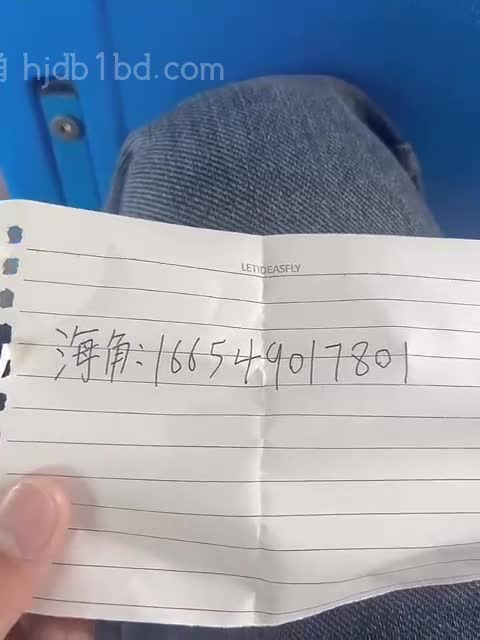 角 hjdb1bd.com
LETIDEASFLY
海角:166549017801